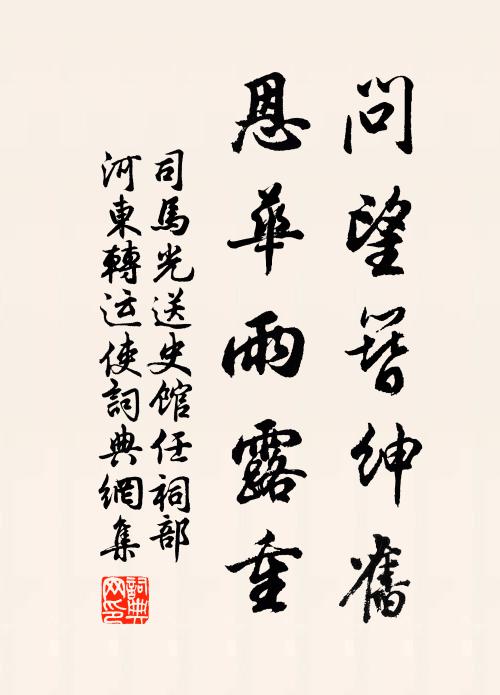 問望簪紳舊
恩華雨露重
司馬光送史館任祠部
河東轉运使詞典網集
詞典
网印